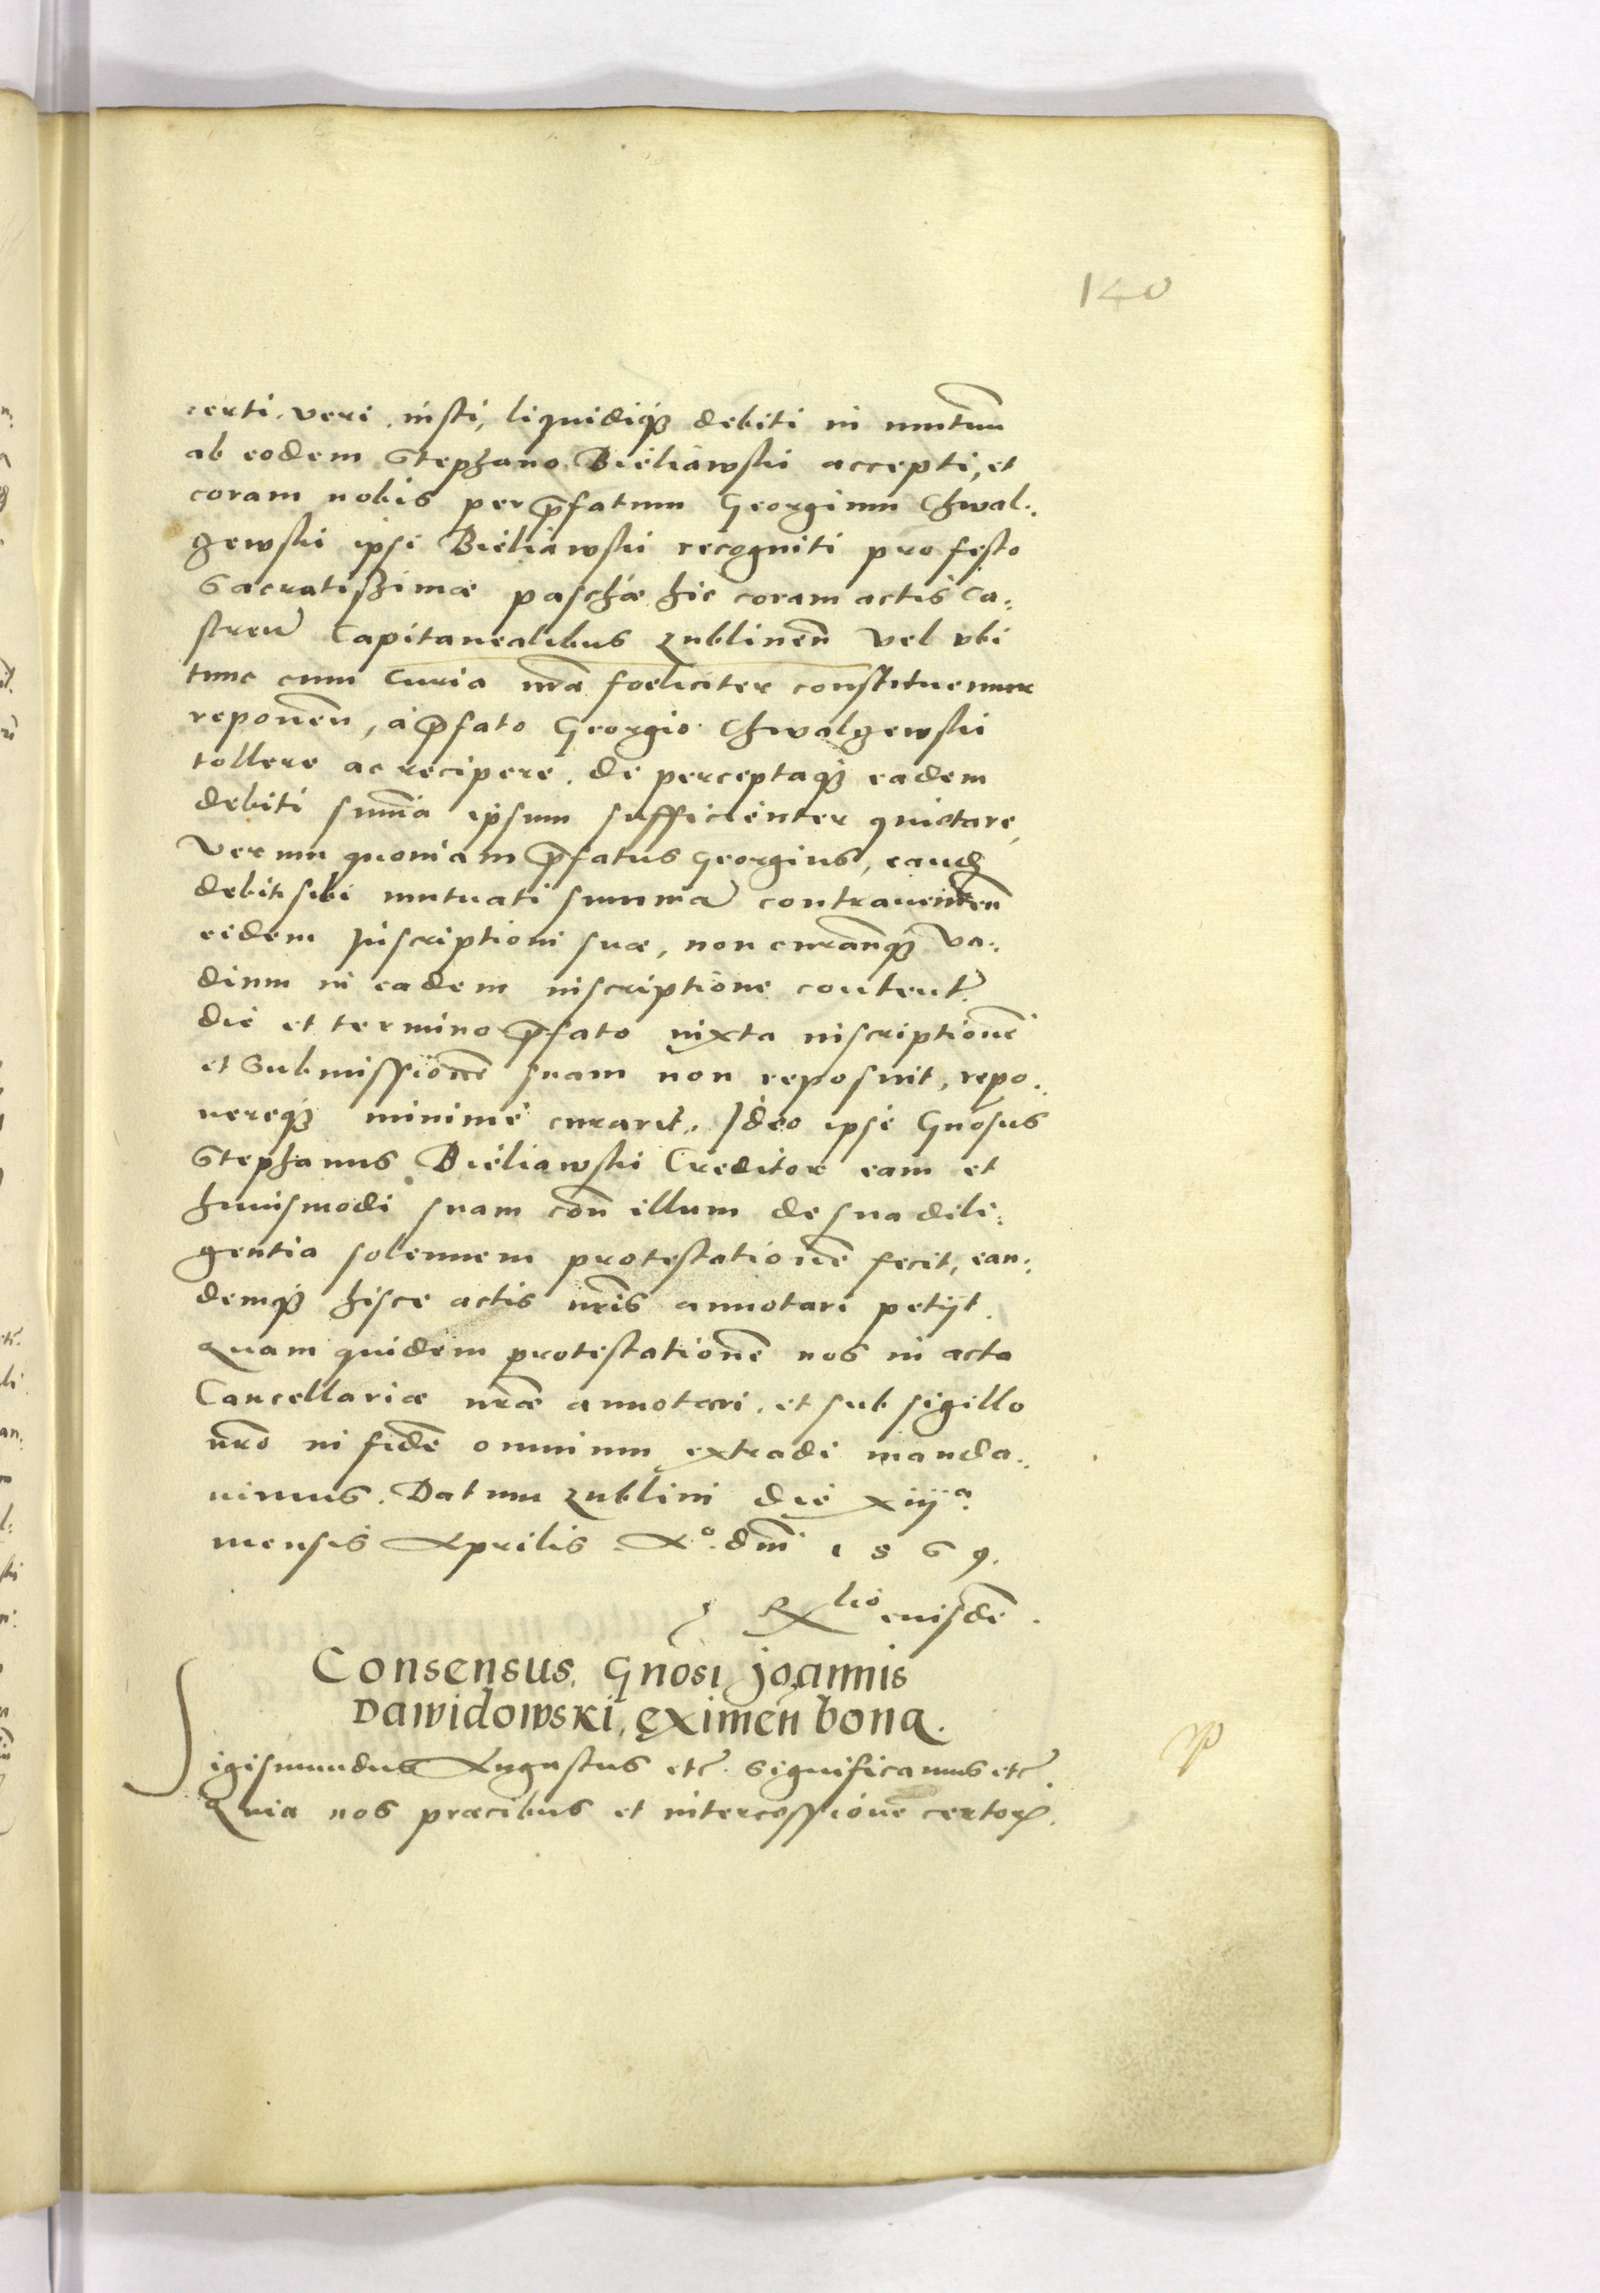 140
certi, veri, iusti, liquidiq₃ debiti in mutuū
ab eodem Stephano Bieliawski accepti, et
coram nobis per p̄fatum Georgium Chwal-
gewski ipsi Bieliawski recogniti pro festo
Sacratissimæ paschæ hic coram actis Ca-
stren̄ Capitanealibus Lublinen̄ vel vbi
tunc cum Curia n̄ra foeliciter constituemur
reponen̄, à p̄fato Georgio Chwalgewski
tollere ac recipere, de perceptaq₃ eadem
debiti sum̄a ipsum sufficienter quietare,
Verum quoniam p̄fatus Georgius, eand̄
debiti sibi mutuati summā contravenien̄
eidem Inscriptioni suæ, non curan̄q₃ va-
dium in eadem inscriptione content̄
die et termino p̄fato iuxta inscriptionē
et Submissionē suam non reposuit, repo-
nereq₃ minimè curavit, Ideo ipse Gn̄osus
Stephanus Bieliawski Creditor eam et
huiusmodi suam con̄ illum de sua dili-
gentia solennem protestationē fecit, ean-
demq₃ hisce actis n̄ris annotari petijt.
Quam quidem protestationē nos in acta
Cancellariæ n̄ræ annotari, et sub sigillo
n̄ro in fidē omnium extradi manda-
uimus. Datum Lublini die xiijª
mensis Aprilis Aº. dn̄i 1569.
Rlio euisdē.
Consensus Gnosi joannis
Dawidowski, eximen̄ bona.
Sigismundus Augustus etc̄. Significamus etc̄.
Quia nos præcibus et intercessione certoꝝ.